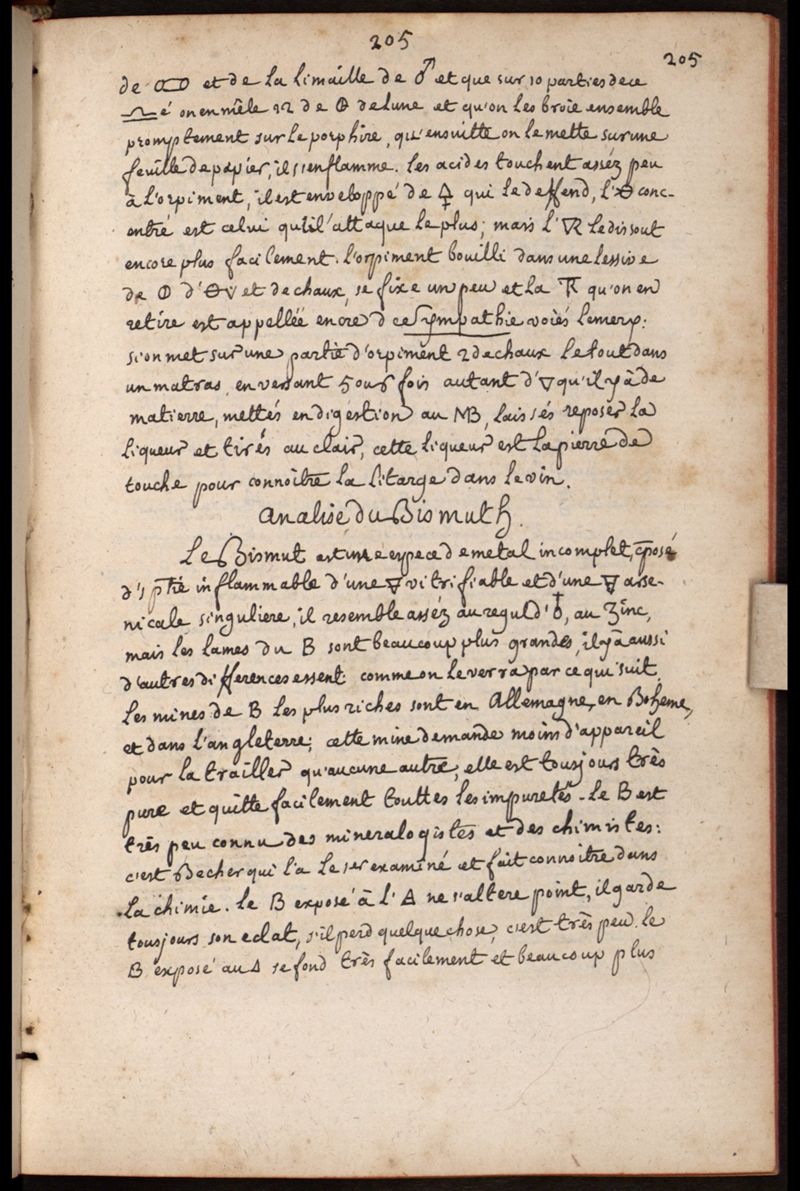 205
205
de 🝞 et de la limaille de ♂ et que sur 10 parties de ce
é on en mêle 22 de 🜔 de lune et qu'on les broie ensemble
promptement sur le porphire, qu'ensuitte on le mette sur une
feuille de papier, il s'enflamme. Les acides touchent asséz peu
à l'orpiment, il est enveloppé de 🜍 qui le deffend, l' conc-
entré est celui qu'il l'attaque le plus; mais l'🜆 le dissout
encore plus facilement. l'orpiment bouilli dans une lessive
de 🜔 d' et de chaux, se fixe un peu et la qu'on en
retire est appellée encre de sympathie voiés Lemery:
si on met sur une partie d'orpiment 2 de chaux le tout dans
un matras en versant 5 ou 6 fois autant d'🜄 qu'il y à de
matierre, mettés en digestion au MB, laissés reposer la
liqueur et tirés au clair, cette liqueur est la pierre de
touche pour connoître la litarge dans le vin.
Analise du Bismuth.
Le Bismut est une espece de metal incomplet, cposé
d'1 ptie inflammable d'une 🜃 vitrifiable et d'une 🜃 arse-
nicale singuliere, il resemble asséz au regul d'♁, au Zinc,
mais les lames du B sont beaucoup plus grandes, il y a aussi
d'autres differences essent: comme on le verra par ce qui suit.
Les mines de B les plus riches sont en Allemagne, en Boheme,
et dans l'angleterre; cette mine demande moins d'appareil
pour la trailler qu'aucune autre, elle est tousjours très
pure et quitte facilement touttes les impuretés. Le B est
très peu connu des mineralogistes et des chimistes:
c'est Becher qui l'a le 1er examiné et fait connoitre dans
la chimie. Le B exposé à l'🜁 ne s'altere point, il garde
tousjours son eclat, s'il perd quelque chose, c'est très peu. le
B exposé au 🜂 se fond très facilement et beaucoup plus